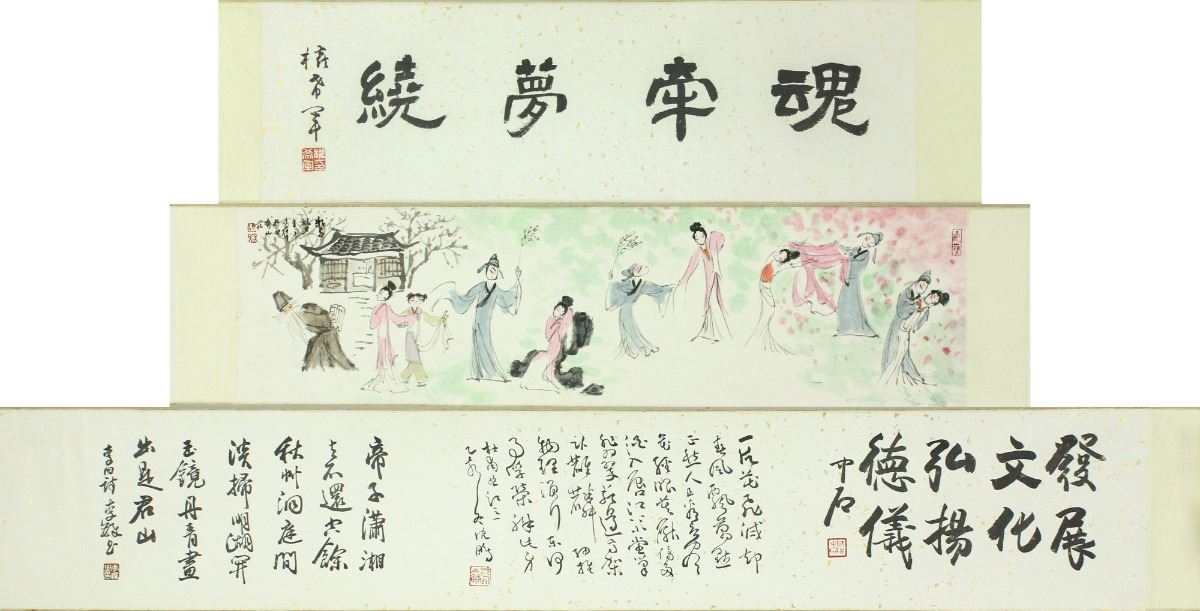 魂牵夢繞
權希軍
發展
文化
弘揚
德儀
中石
一片花飛減却
春風飄萬點
正愁人且看欲盡
花經眼莫厭傷多
酒入唇江上小堂巢
翡翠苑邊高塚
卧麒麟細推
物理須行樂何
用浮榮絆此身
杜甫曲江
沈鵬
帝子瀟湘
去不還空餘
秋草洞庭間
淡掃明湖開
玉鏡丹青畫
出是君山
李白詩李鐸書